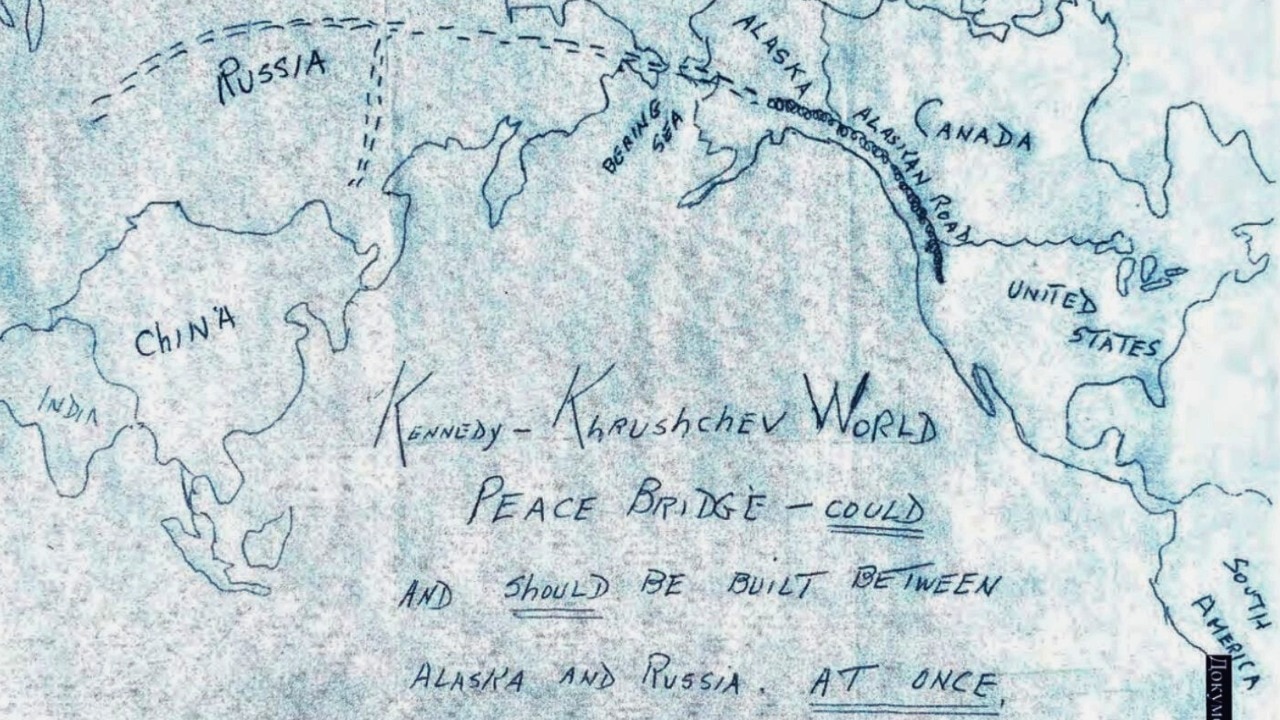 RUSSIA
ALASKA
CANADA
BERING
SEA
ALASKAN ROAD
CHINA
INDIA
UNITED
STATES
KENNEDY – KHRUSHCHEV WORLD
PEACE BRIDGE – COULD
AND SHOULD BE BUILT BETWEEN
ALASKA AND RUSSIA. AT ONCE,
SOUTH
AMERICA